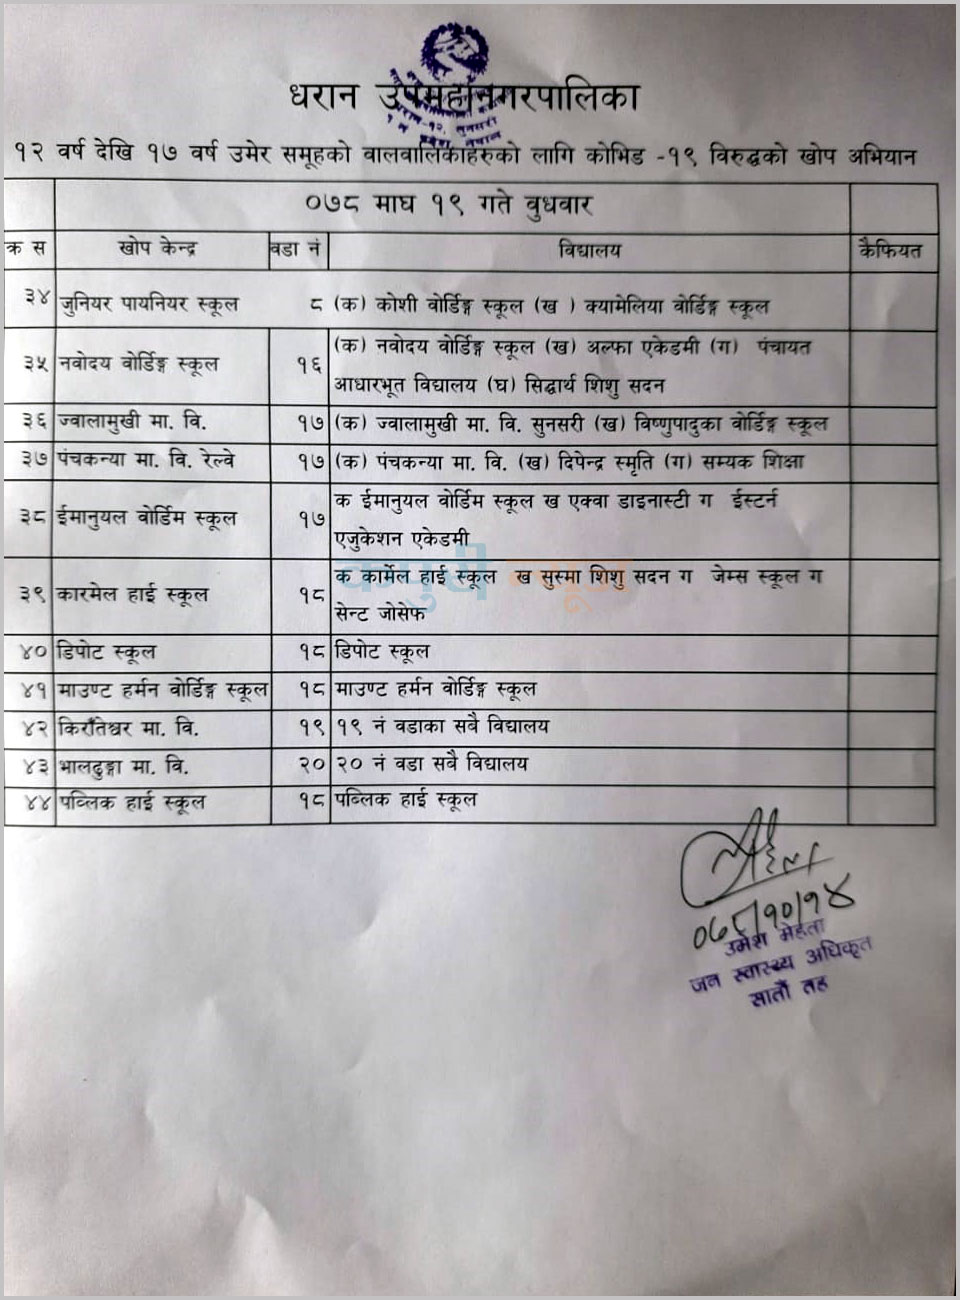 धरान उपमहानगरपालिका
१२ वर्ष देखि १७ वर्ष उमेर समूहको वालवालिकाहरुको लागि कोभिड -१९ विरुद्धको खोप अभियान
०७८ माघ १९ गते वुधवार
क्र स खोप केन्द्र वडा नं विद्यालय कैफियत
३४ जुनियर पायनियर स्कूल ८ (क) कोशी वोर्डिङ्ग स्कूल (ख ) क्यामेलिया वोर्डिङ्ग स्कूल
३५ नवोदय वोर्डिङ्ग स्कूल १६ (क) नवोदय वोर्डिङ्ग स्कूल (ख) अल्फा एकेडमी (ग) पंचायत
आधारभूत विद्यालय (घ) सिद्धार्थ शिशु सदन
३६ ज्वालामुखी मा. वि. १७ (क) ज्वालामुखी मा. वि. सुनसरी (ख) विष्णुपादुका वोर्डिङ्ग स्कूल
३७ पंचकन्या मा. वि. रेल्वे १७ (क) पंचकन्या मा. वि. (ख) दिपेन्द्र स्मृति (ग) सम्यक शिक्षा
३८ ईमानुयल वोर्डिम स्कूल १७ क ईमानुयल वोर्डिम स्कूल ख एक्वा डाइनास्टी ग ईस्टर्न
एजुकेशन एकेडमी
३९ कारमेल हाई स्कूल १८ क कार्मेल हाई स्कूल ख सुस्मा शिशु सदन ग जेम्स स्कूल ग
सेन्ट जोसेफ
४० डिपोट स्कूल १८ डिपोट स्कूल
४१ माउण्ट हर्मन वोर्डिङ्ग स्कूल १८ माउण्ट हर्मन वोर्डिङ्ग स्कूल
४२ किराँतेश्वर मा. वि. १९ १९ नं वडाका सबै विद्यालय
४३ भालढुङ्गा मा. वि. २० २० नं वडा सबै विद्यालय
४४ पव्लिक हाई स्कूल १८ पव्लिक हाई स्कूल
०७८/१०/१४
उमेश मेहता
जन स्वास्थ्य अधिकृत
सातौं तह